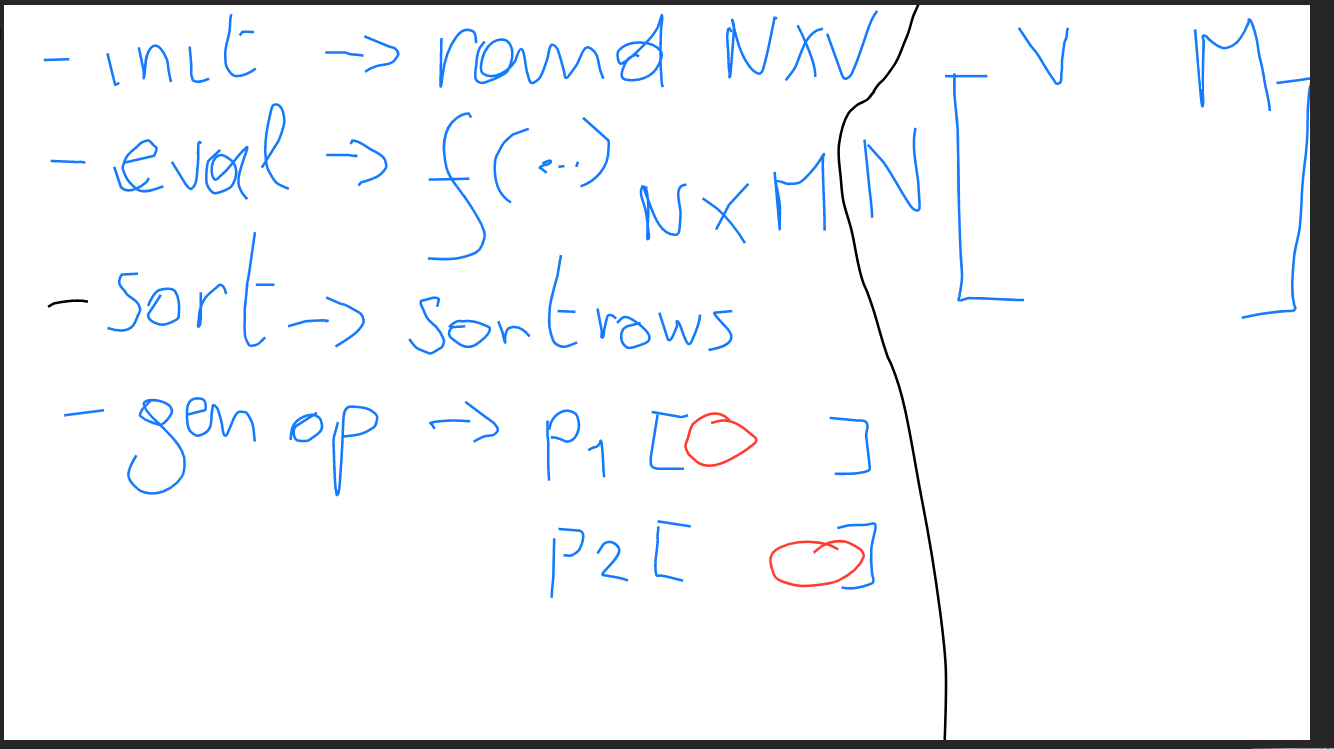 - init → rand NxV
- eval → f(...) NxM
- sort → sortrows
- gen op → P1 [ ]
P2 [ ]
V M
N [ ]